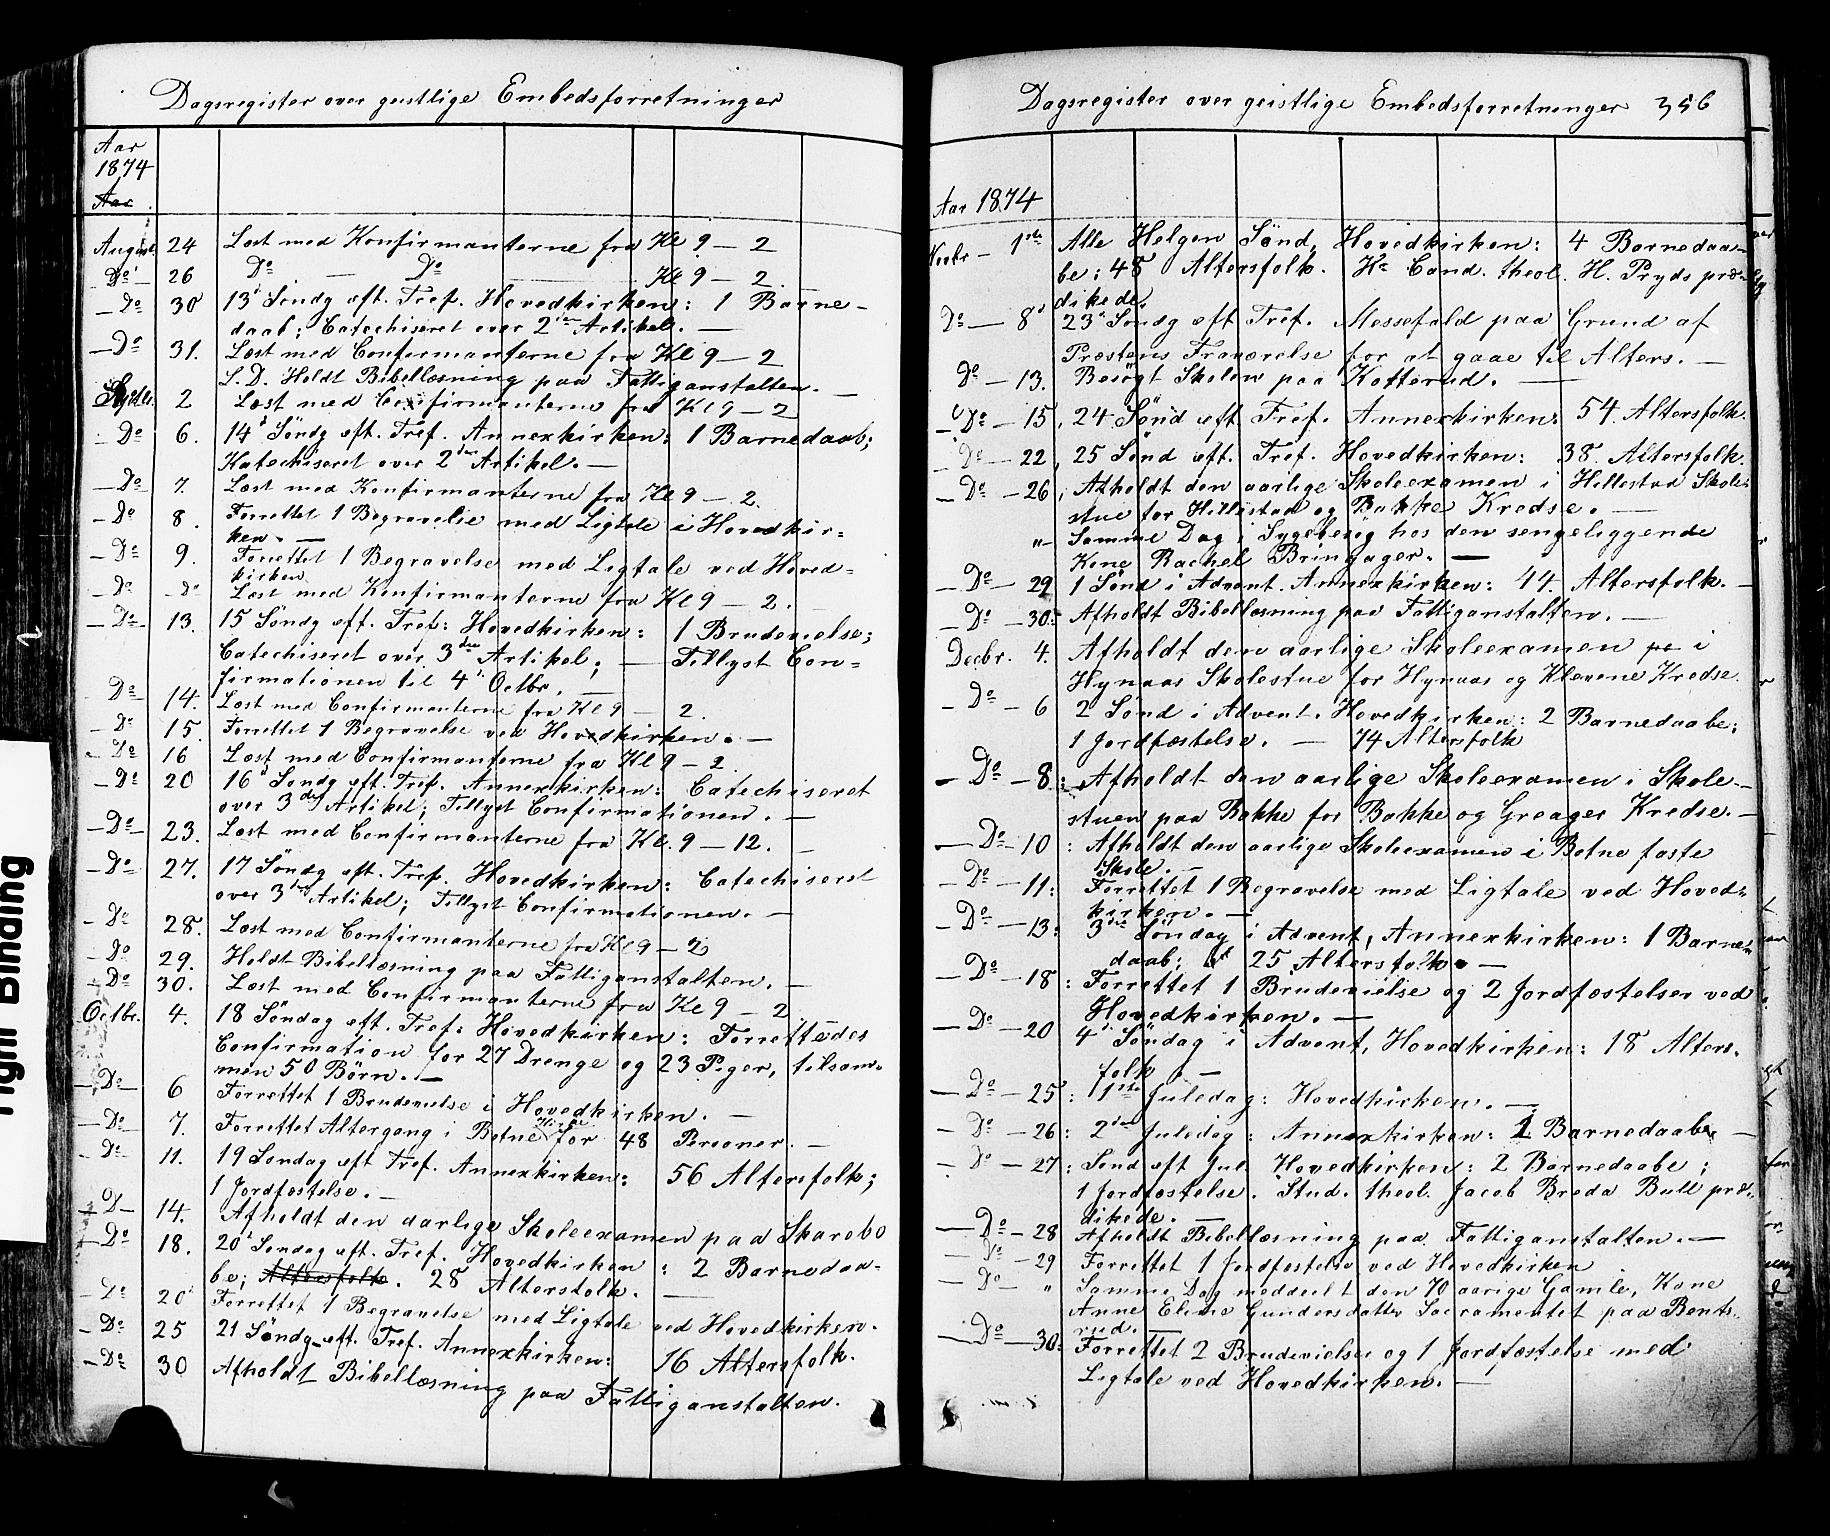 Dagsregister over geistlige Embedsforretninger
Aar
1874
Aar
August 24 Læst med Konfirmanterne fra Kl 9 – 2
Do 26 Do — Do — Kl 9 – 2
– Do 30 13d Søndg eft. Tref. Hovedkirken: 1 Barne-
daab; Catechiseret over 2den Artikel. —
– Do 31. Læst med Confirmanterne fra Kl 9 – 2
S. D. Holdt Bibellæsning paa Fattiganstalten. —
Septbr. 2 Læst med Confirmanterne fra Kl 9 – 2
– Do 6. 14d Søndg eft. Tref. Annexkirken: 1 Barnedaab;
Katechiseret over 2den Artikel. —
– Do 7. Læst med Konfirmanterne fra Kl 9 – 2.
– Do 8. Forrettet 1 Begravelse med Ligtale i Hovedkir=
ken. —
– Do 9. Forrettet 1 Begravelse med Ligtale ved Hoved=
kirken
– Do – Do Læst med Konfirmanterne fra Kl 9 – 2.
– Do 13. 15 Søndg eft. Tref: Hovedkirken: 1 Brudevielse;
Catechiseret over 3die Artikel; — Tillyst Con=
firmationen til 4d Octbr. —
– Do 14. Læst med Confirmanterne fra Kl 9 – 2.
– Do 15. Forrettet 1 Begravelse ved Hovedkirken. —
– Do 16 Læst med Confirmanterne fra Kl 9 – 2
– Do 20 16d Søndg eft. Tref. Annexkirken: Catechiseret
over 3die Artikel; Tillyst Confirmationen. —
– Do 23. Læst med Confirmanterne fra Kl. 9 – 12. —
– Do 27. 17 Søndg eft. Tref. Hovedkirken: Catechiseret
over 3die Artikel; Tillyst Confirmationen. —
– Do 28. Læst med Confirmanterne fra Kl 9 – 2
– Do 29. Holdt Bibellæsning paa Fattiganstalten. —
– Do 30. Læst med Confirmanterne fra Kl 9 – 2
Octbr. 4. 18 Søndag eft. Tref: Hovedkirken: Forrettedes
Confirmation for 27 Drenge og 23 Piger, tilsam=
men 50 Börn. —
– Do 6 Forrettet 1 Brudevielse i Hovedkirken. —
– Do 7. Forrettet Altergang i Botne Kirke for 48 Personer. —
– Do 11. 19 Søndag eft Tref. Annexkirken: 56 Altersfolk;
1 Jordfæstelse. —
– D 14. Afholdt den aarlige Skoleexamen paa Skarebo
– Do 18. 20d Søndag eft. Tref. Hovedkirken: 2 Barnedaa-
be; Altersfolk. 28 Altersfolk. —
– Do 20 Forrettet 1 Begravelse med Ligtale ved Hovedkirken.
– Do 25 21 Søndg eft. Tref. Annexkirken: 16 Altersfolk.
– Do 30 Afholdt Bibellæsning paa Fattiganstalten.
Dagsregister over geistlige Embedsforretninger 356
Aar 1874
Novbr – 1ste Alle Helgen Sønd, Hovedkirken: 4 Barnedaa-
be; 48 Altersfolk. Hr Cand. theol. H. Pryds præ-
dikede.
Do — 8d 23d Søndg eft Tref. Messefald paa Grund af
Præstens Fraværelse for at gaae til Alters. —
Do – 13. Besøgt Skolen paa Kotterud. —
– Do – 15. 24 Sønd eft Tref. Annexkirken: 54 Altersfolk.
– Do – 22. 25 Sønd eft. Tref. Hovedkirken: 38 Altersfolk.
– Do – 26; Afholdt den aarlige Skoleexamen i Hillestad Skole=
stue for Hillestad og Bakke Kredse. —
"– Samme Dag i Sygebesøg hos den sengeliggende
Kone Rachel Bringager. —
– Do – 29 1 Sønd i Advent. Annexkirken: 44 Altersfolk. —
– Do – 30: Afholdt Bibellæsning paa Fattiganstalten. —
Decbr. 4. Afholdt den aarlige Skoleexamen pa i
Hynaas Skolestue for Hynaas og Klevene Kredse.
– Do – 6 2 Sønd i Advent. Hovedkirken: 2 Barnedaabe;
1 Jordfæstelse. — 74 Altersfolk
– Do – 8: Afholdt den aarlige Skoleexamen i Skole-
stuen paa Bakke for Bakke og Greager Kredse. —
– Do – 10: Afholdt den aarlige Skoleexamen i Botne faste
Skole. —
– Do – 11: Forrettet 1 Begravelse med Ligtale ved Hoved=
kirken. —
– Do – 13: 3die Søndag i Advent, Annexkirken: 1 Barne-
daab; 25 Altersfolk. —
– Do – 18: Forrettet 1 Brudevielse og 2 Jordfæstelser ved
Hovedkirken. —
– Do – 20 4d Søndag i Advent, Hovedkirken: 18 Alters-
folk. —
– Do – 25: 1ste Juledag: Hovedkirken. —
– Do – 26: 2den Juledag: Annexkirken: 1 Barnedaab —
– Do – 27: Sønd eft Jul. Hovedkirken: 2 Barnedaabe;
1 Jordfæstelse. Stud. theol. Jacob Breda Bull præ-
dikede. —
– Do – 28 Afholdt Bibellæsning paa Fattiganstalten. —
– Do – 29 Forrettet 1 Jordfæstelse ved Hovedkirken
– Do – " Samme Dag meddeelt den 70 aarige Gamle, Kone
Anne Gundersdatter Sacramentet paa Bents-
rud. —
– Do – 30: Forrettet 2 Brudevielser og 1 Jordfæstelse med
Ligtale ved Hovedkirken. —
Tight Binding